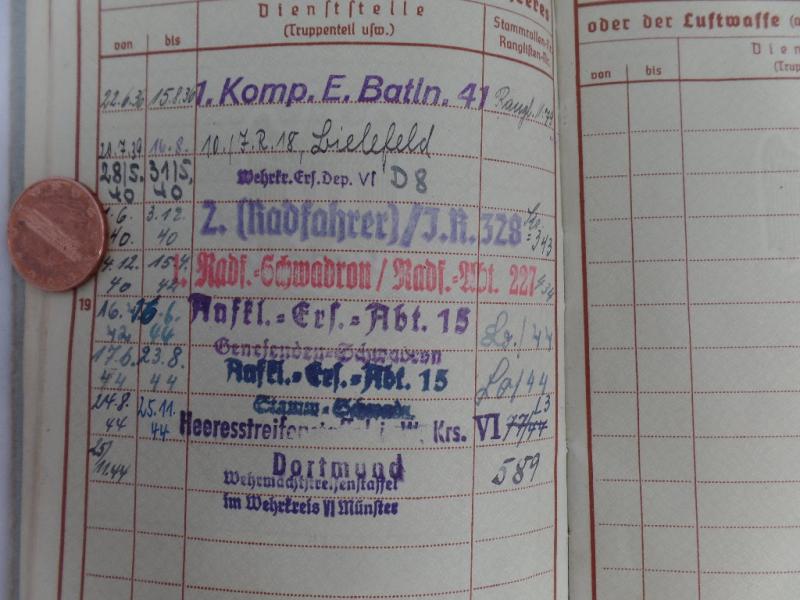 Dienststelle
(Truppenteil usw.)
von bis
Stammrollen-
Ranglisten-Nr.
22.6.36 15.8.36 1. Komp. E. Batln. 41
28.7.39 16.8. 10./I.R.18, Bielefeld
28/5. 40 31/5. 40 Wehrkr.Ers.Dep. VI D8
1.6. 40. 3.12. 40 2. (Radfahrer)/I.R. 328 343
4.12. 40 15.4. 42 1. Radf.-Schwadron / Radf.-Abt. 227 434
19
16.4. 42 16.6. 44 Aufkl.-Ers.-Abt. 15
Genesenden-Schwadron
17.6. 44 23.8. 44 Aufkl.-Ers.-Abt. 15
Stamm-Schwadr.
24.8. 44 25.11. 44 Heeresstreifenstaffel i. W. Krs. VI 77/44 13
25/11.44 Dortmund 589
Wehrmachtstreifenstaffel
im Wehrkreis VI Münster
oder der Luftwaffe
von bis